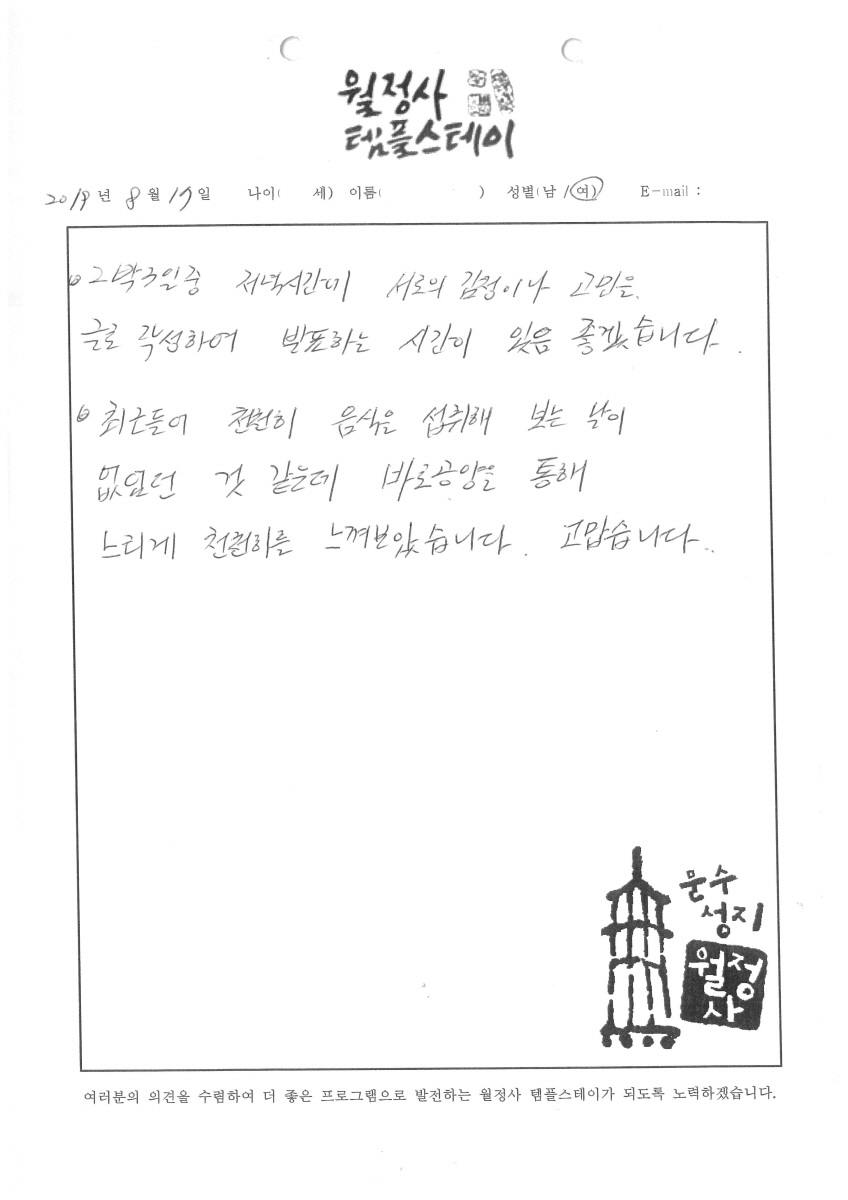 월정사
템플스테이
2019년 8월 17일 나이( 세) 이름( ) 성별(남/여) E-mail :
2박3일중 저녁시간대 서로의 감정이나 고민을
글로 작성하여 발표하는 시간이 있음 좋겠습니다.
최근들어 천천히 음식을 섭취해 보는 날이
없었던 것 같은데 바로공양을 통해
느리게 천천히를 느껴보았습니다. 고맙습니다..
문수
성지
월정
사
여러분의 의견을 수렴하여 더 좋은 프로그램으로 발전하는 월정사 템플스테이가 되도록 노력하겠습니다.